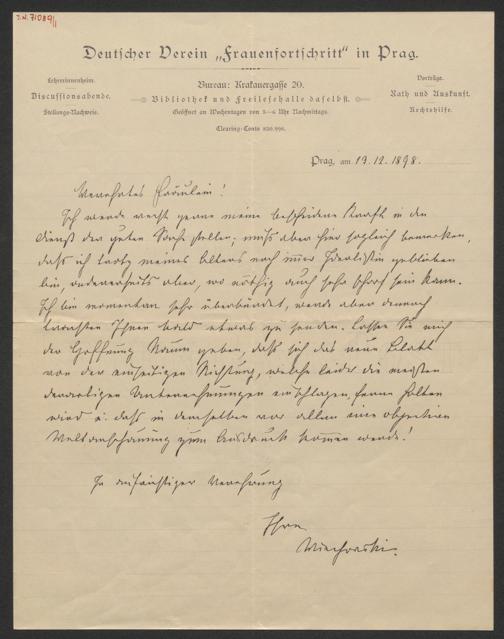 I.N. 71089
Deutscher Verein „Frauenfortschritt" in Prag.
Lehrerinnenheim.
Discussionsabende.
Stellungs-Nachweis.
Bureau: Krakauergasse 20.
Bibliothek und Freilesehalle daselbst.
Geöffnet an Wochentagen von 3–6 Uhr Nachmittags.
Clearing-Conto
Vorträge.
Rath und Auskunft.
Rechtshilfe.
Prag, am 19.12.1898.
Verehrtes Fräulein!
Ich werde recht gerne meine bescheidene Kraft in den
Dienst der guten Sache stellen; muß aber hier sogleich bemerken,
daß ich trotz meines Alters noch immer Idealistin geblieben
bin, andererseits aber, wo nöthig auch sehr scharf sein kann.
Ich bin momentan sehr überbürdet, werde aber dennoch
trachten Ihnen bald etwas zu senden. Lassen Sie mich
der Hoffnung Raum geben, daß sich das neue Blatt
von der einseitigen Richtung, welche leider die meisten
derartigen Unternehmungen einschlagen, ferne halten
wird u. daß in demselben vor allem eine objective
Weltanschauung zum Ausdruck kommen werde!
In aufrichtiger Verehrung
Ihre
Wiechowski.